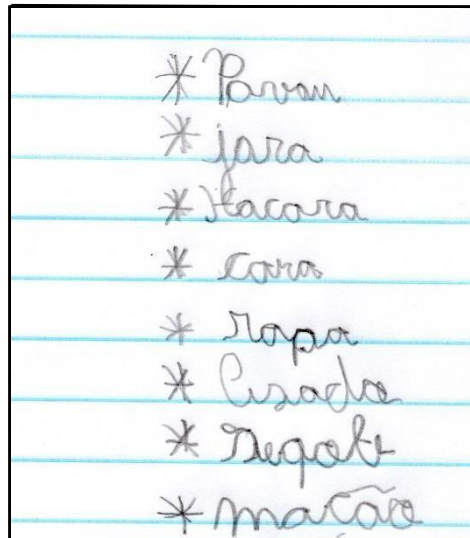 * Pavan
* jara
* Itacara
* cara
* rapa
* Cisada
* regole
* matão